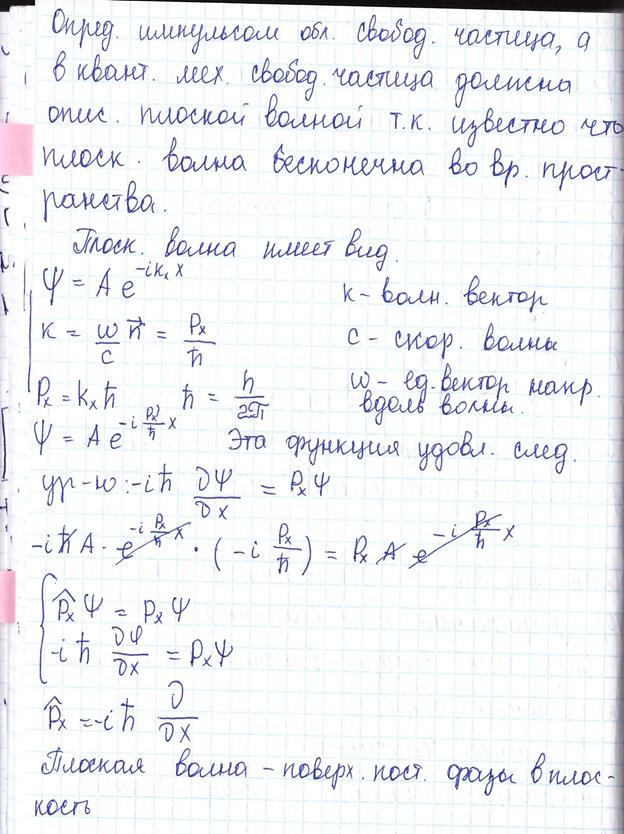 Опред. импульсом обл. свобод. частица, а
в квант. мех. свобод. частица должна
опис. плоской волной т.к. известно что
плоск. волна бесконечна во вр. прост-
ранства.
Плоск. волна имеет вид.
Ψ = A e^{-ik_x x} k - волн. вектор
k = ω/c n⃗ = P_x/ħ c - скор. волны
P_x = k_x ħ ħ = h/2π ω - ед. вектор напр.
вдоль волны.
Ψ = A e^{-i P_x/ħ x} Эта функция удовл. след.
ур-ю: -iħ ∂Ψ/∂x = P_x Ψ
-iħ A · e^{-i P_x/ħ x} · (-i P_x/ħ) = P_x A e^{-i P_x/ħ x}
P̂_x Ψ = P_x Ψ
-iħ ∂Ψ/∂x = P_x Ψ
P̂_x = -iħ ∂/∂x
Плоская волна - поверх. пост. фазы в плос-
кость